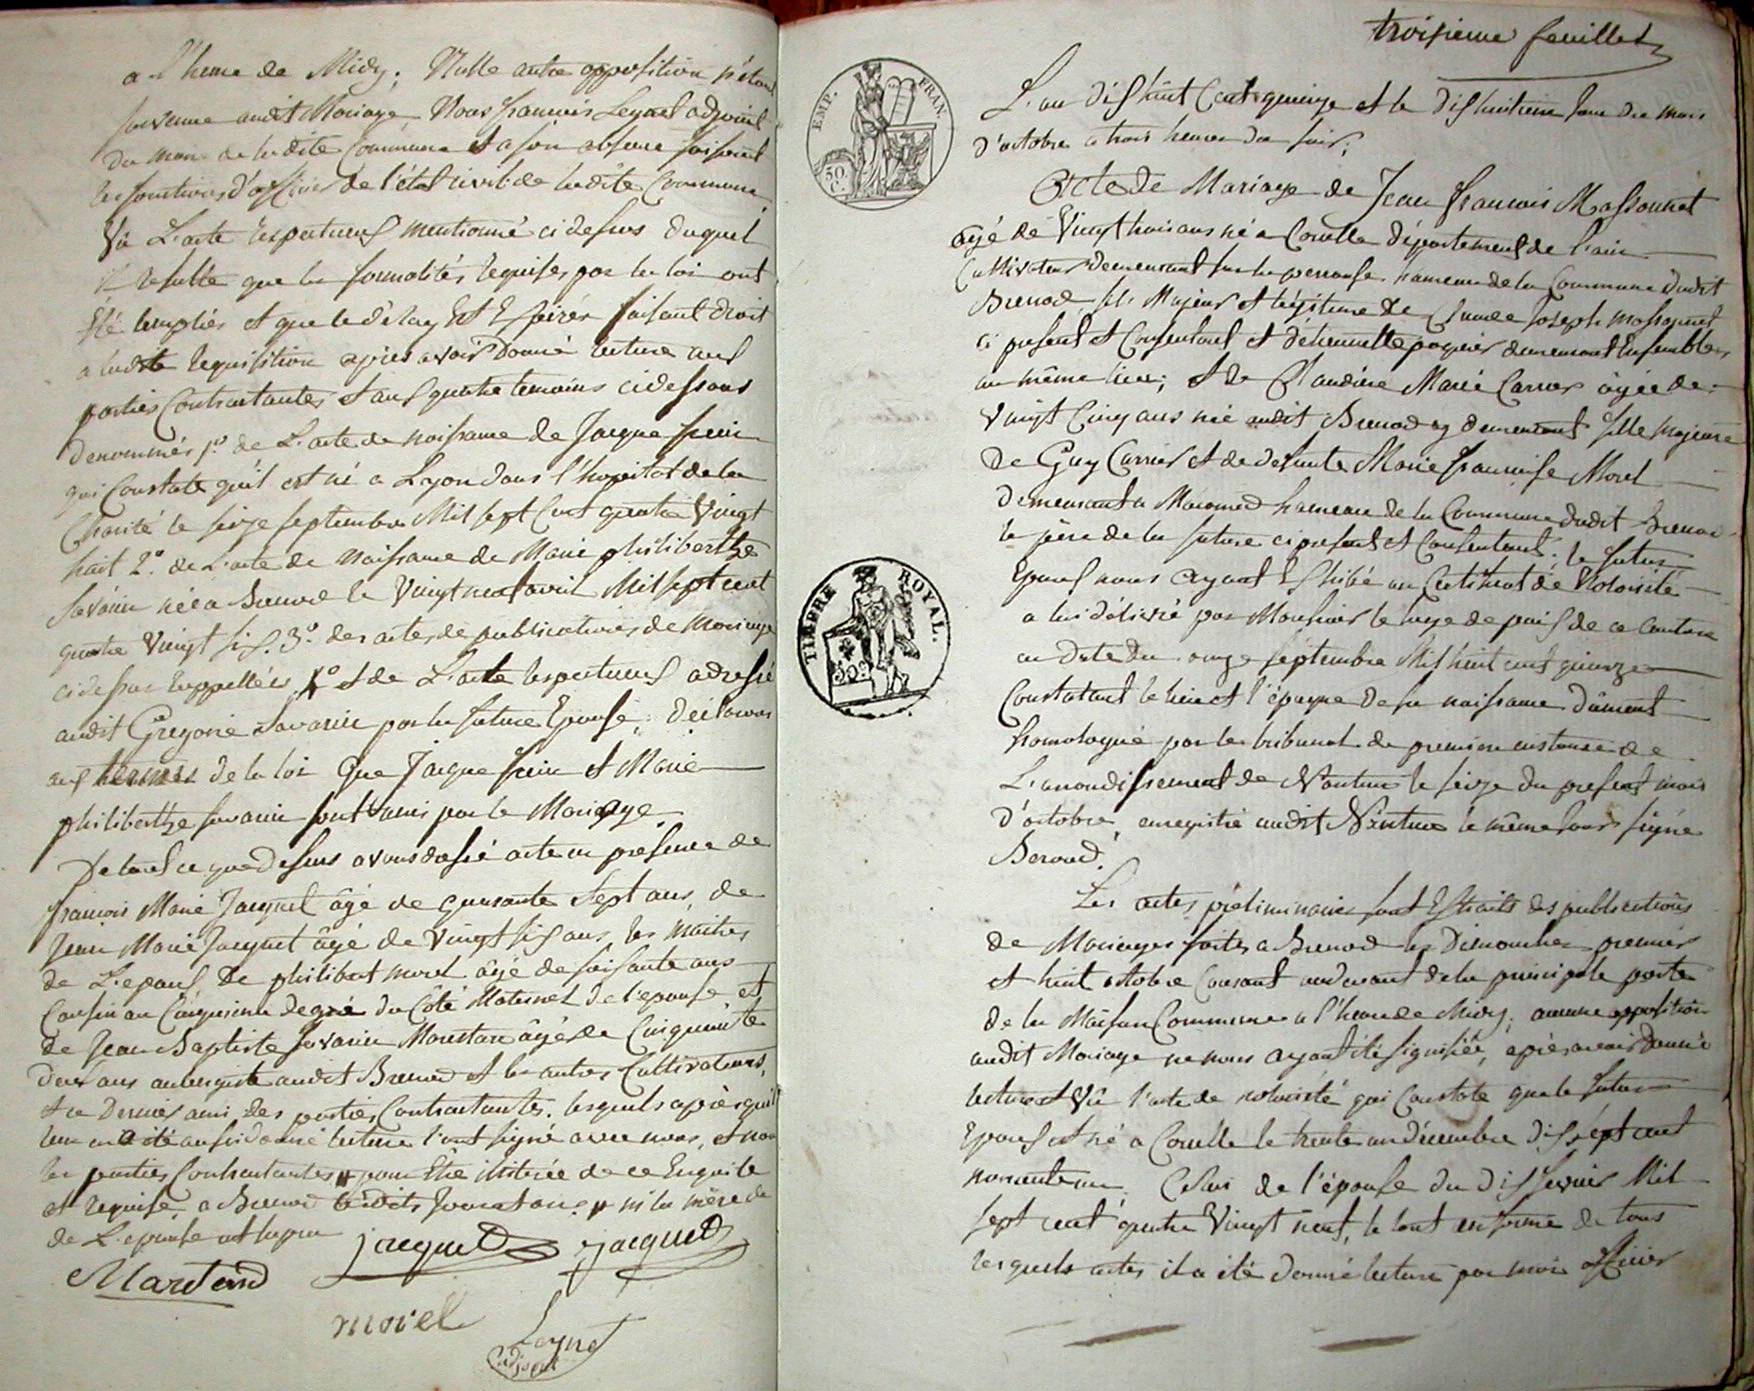 a l'heure de Midy; Nulle autre opposition n'étant
survenue audit Mariage, Nous francois Leynet adjoint
du maire de ladite Commune et a son absence faisant
les fonctions d'officier de l'état civil de ladite Commune
Vû L'acte respectueux mentionné ci dessus duquel
il resulte que les formalités requises par la loi ont
été remplies et que le délay Est Expiré; faisant droit
a ladite requisition apres avoir donné lecture aux
parties Contractantes et aux quatre temoins ci dessous
denommés 1º. de L'acte de naissance de Jacque
qui Constate qu'il est né a Lyon dans l'hopital de la
Charité le seize septembre Mil sept Cent quatre Vingt
huit 2º. de L'acte de naissance de Marie philiberthe
Savarin née a Brenod le Vingt neuf avril Mil sept cent
quatre Vingt six. 3º. des actes de publications de Mariage
ci dessus rappellées 4º et de L'acte respectueux adressé
audit Gregoire Savarin par la future Epouse; declarons
aux termes de la loi que Jacque et Marie
philiberthe Savarin sont unis par le Mariage.
De tout ce que Dessus avons dressé acte en presence de
francois Marie Jacquet âgé de quarante Sept ans, de
Jean Marie Jacquet âgé de Vingt six ans les maitres
de L'epoux de philibert morel âgé de soixante ans
Cousin au Cinquieme degré du Côté Maternel de l'epouse, et
de Jean Baptiste Savarin âgé de Cinquante
deux ans aubergiste audit Brenod et les autres Cultivateurs,
et ce Dernier ami des parties Contractantes. lesquels après qu'il
leur en a été aussi donné lecture l'ont signé avec nous, et non
les parties Contractantes pour Etre illiterées de ce Enquise
et requise, a Brenod lesdits Jour et an. ni la mère de
de L'epouse ut supra
jacquet jacquet
Martend
morel
Leynet
adjoint
troisieme feuillet
EMP. FRAN.
50 C.
L'an dix huit Cent quinze et le dix huitieme Jour du mois
d'octobre a trois heures du soir;
Acte de Mariage de Jean francois Massonnet
âgé de Vingt trois ans né a Corcelle département de l'ain
Cultivateur demeurant sur la perouse hameau de la Commune dudit
Brenod fils Majeur et légitime de Claude Joseph massonnet
ci present et Consentant et d'étiennette poncier demeurant Ensembles
au même lieu; et de Claudine Marie Carrier âgée de
Vingt Cinq ans née audit Brenod y demeurant fille majeure
de Guy Carrier et de defunte Marie francoise Morel
demeurant a Macconod hameau de la Commune dudit Brenod
le père de la future ci present et Consentant; le futur
Epoux nous ayant Exhibé un Certificat de Notoriété
a lui délivré par Monsieur le Juge de paix de ce Canton
en date du onze septembre Mil huit cent quinze
Constatant le lieu et l'époque de sa naissance dûment
homologué par le tribunal de premiere instance de
L'arrondissement de Nantua le seize du present mois
d'octobre, enregistré audit Nantua le même Jour signé
Beroud.
TIMBRE ROYAL.
50c
Les actes préliminaires sont Extraits des publications
de Mariages faites a Brenod les Dimanches premier
et huit octobre Courant audevant de la principale porte
de la Maison Commune a l'heure de Midy; aucune opposition
audit Mariage ne nous ayant été signifiée, après avoir donné
lecture et Vû l'acte de notoriété qui Constate que le futur
Epoux est né a Corcelle le trente un décembre dix sept cent
nonante un. Celui de l'épouse du dix Janvier Mil
sept cent quatre Vingt neuf, le tout en forme de tous
lesquels actes il a été donné lecture par moi officier